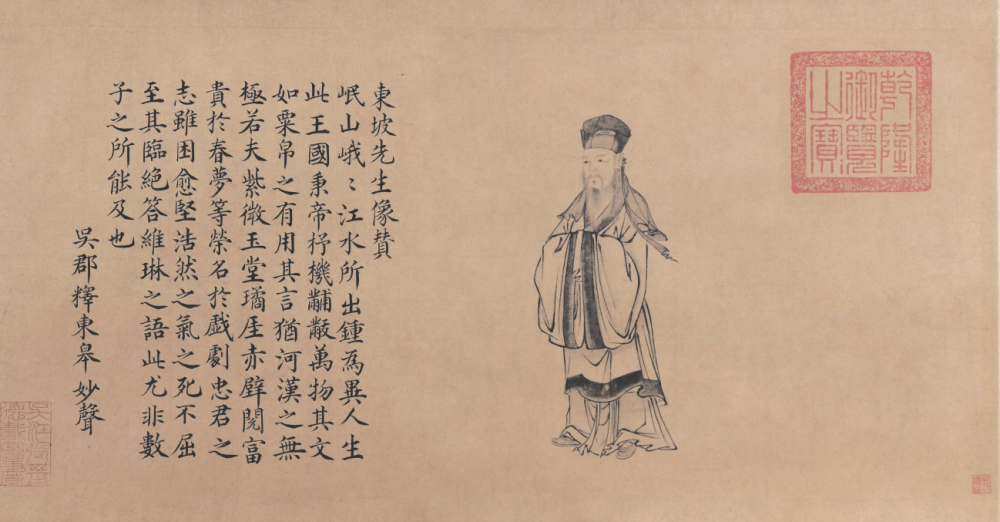 乾隆
御覽
之寶
東坡先生像贊
岷山峨〻江水所出鍾為異人生
此王國秉帝杼機黼黻萬物其文
如粟帛之有用其言猶河漢之無
極若夫紫微玉堂璚厓赤壁閱富
貴於春夢等榮名於戲劇忠君之
志雖困愈堅浩然之氣之死不屈
至其臨絕答維琳之語此尤非數
子之所能及也
吳郡釋東皋妙聲